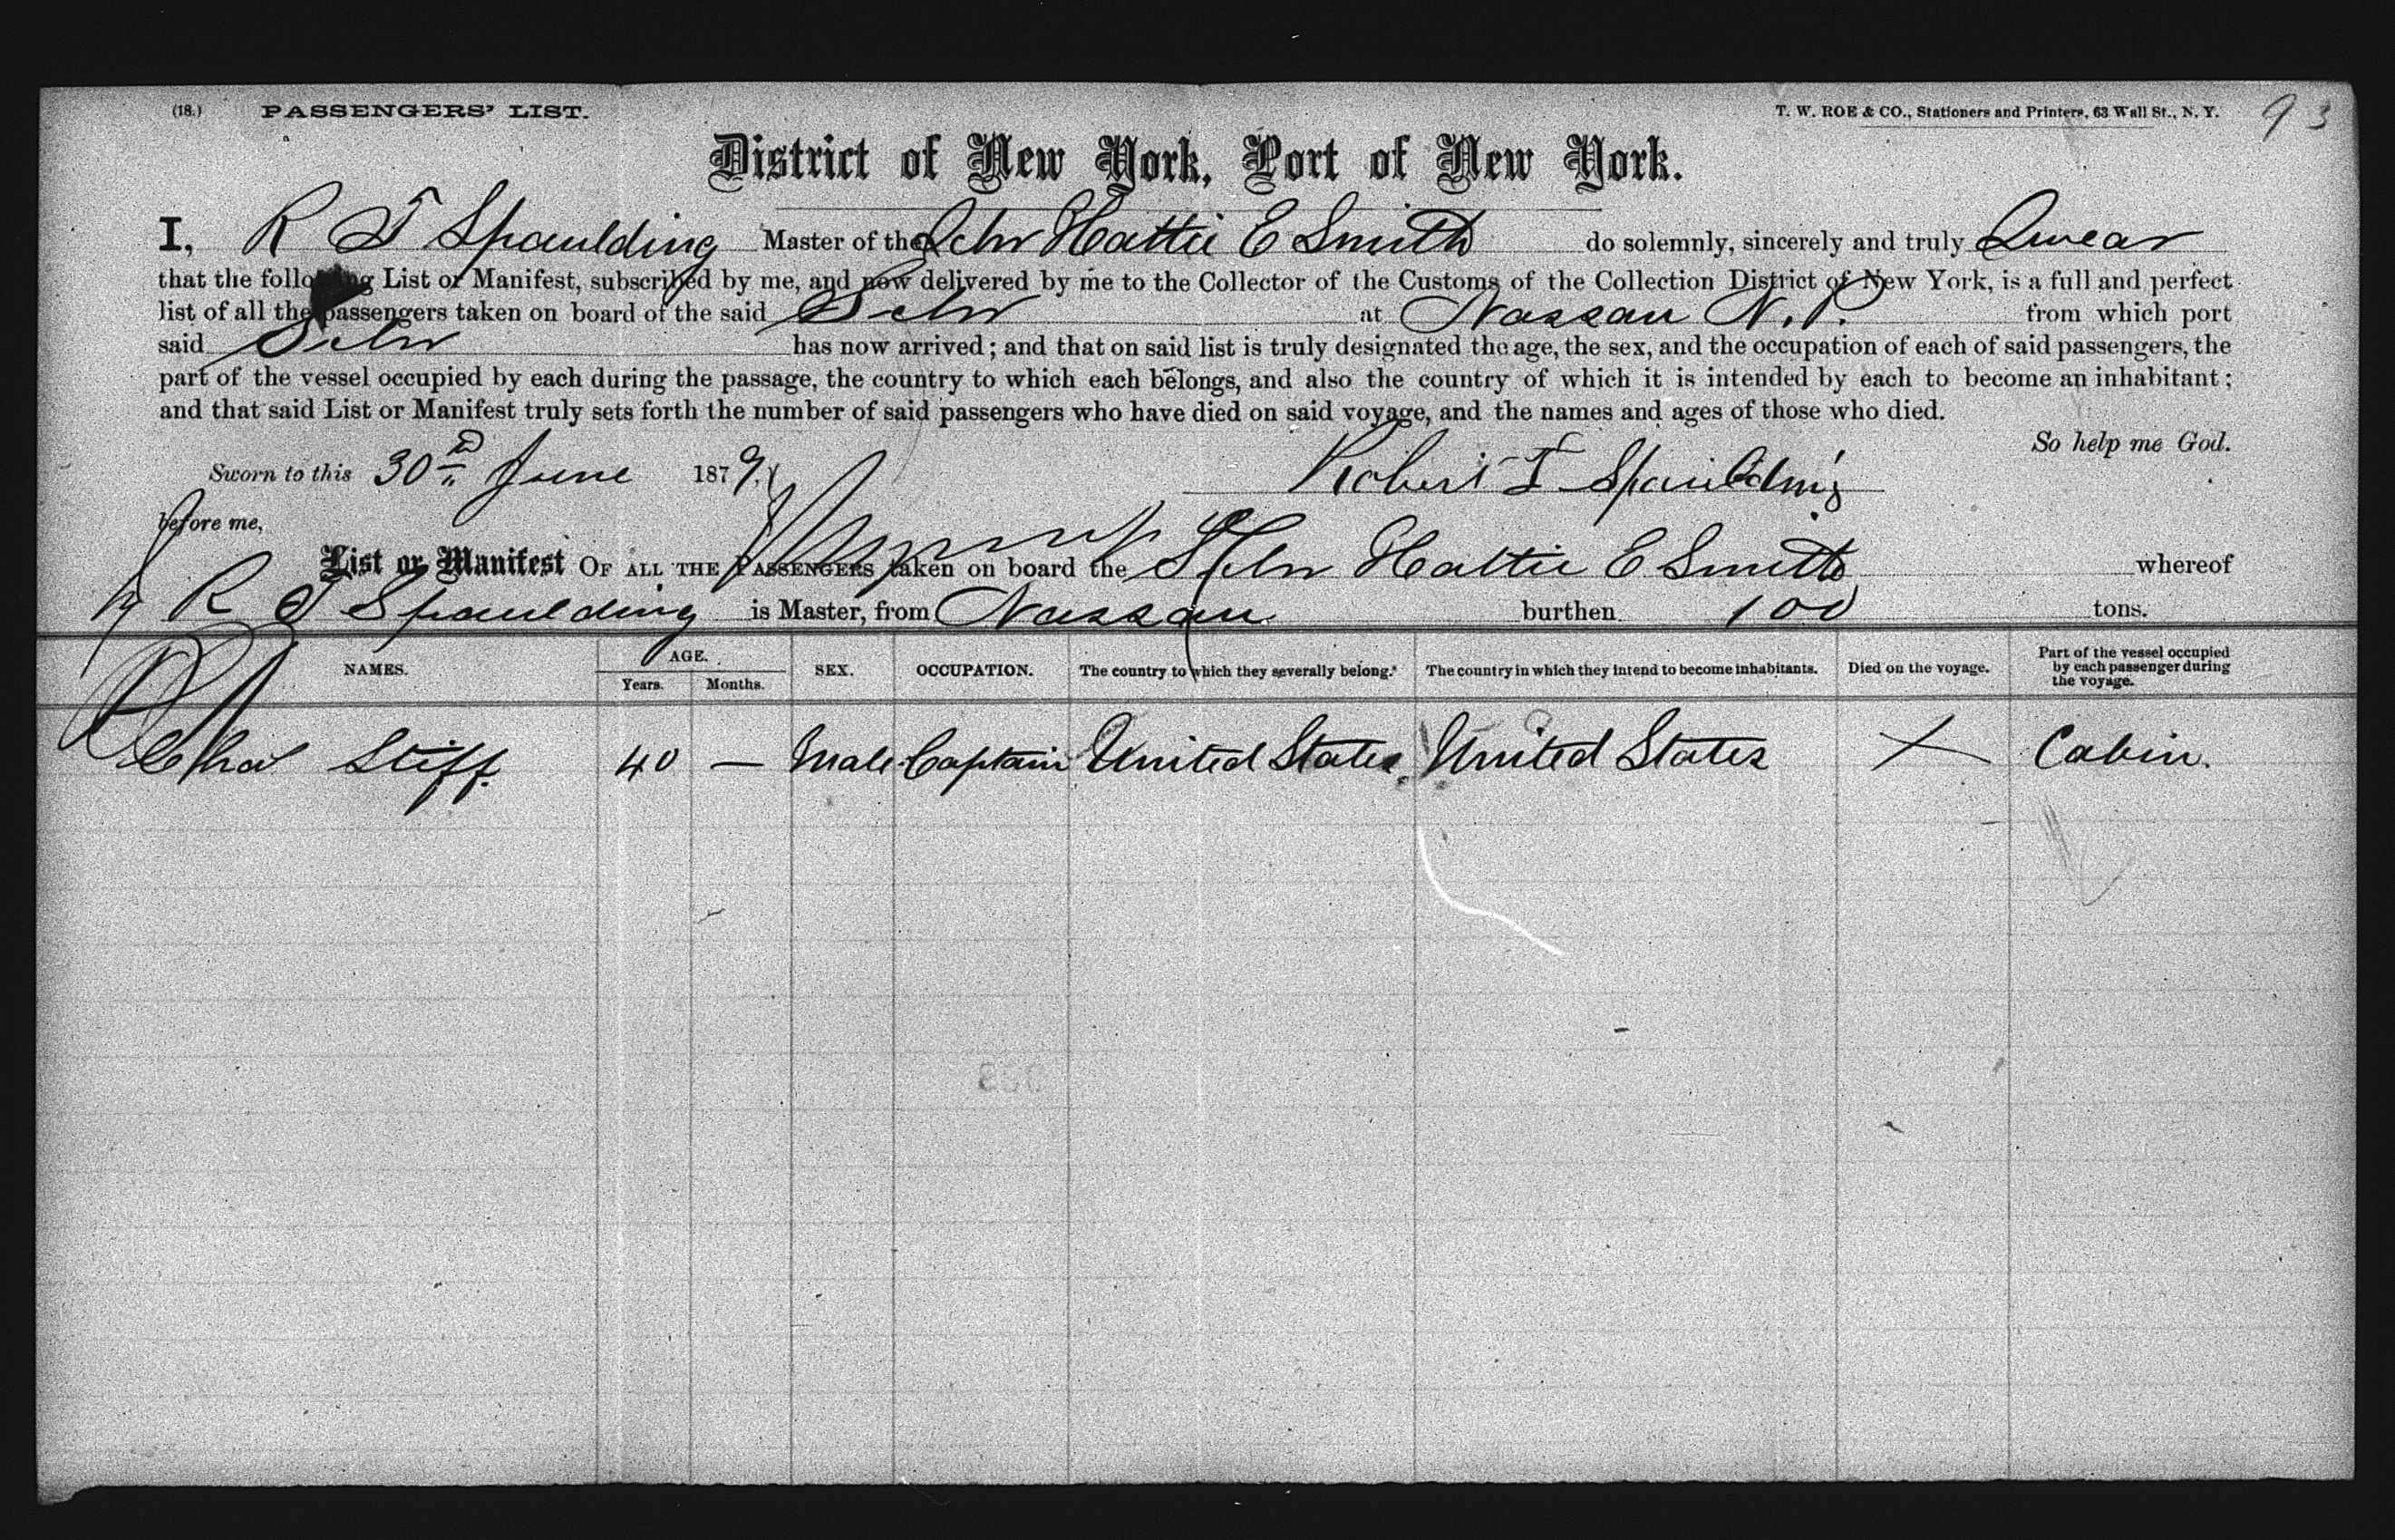 (18.) PASSENGERS' LIST. T. W. ROE & CO., Stationers and Printers, 63 Wall St., N. Y. 93
District of New York, Port of New York.
I, R T Spaulding Master of the Schr Hattie E Smith do solemnly, sincerely and truly Swear
that the following List or Manifest, subscribed by me, and now delivered by me to the Collector of the Customs of the Collection District of New York, is a full and perfect
list of all the passengers taken on board of the said Schr at Nassau N. P. from which port
said Schr has now arrived; and that on said list is truly designated the age, the sex, and the occupation of each of said passengers, the
part of the vessel occupied by each during the passage, the country to which each belongs, and also the country of which it is intended by each to become an inhabitant;
and that said List or Manifest truly sets forth the number of said passengers who have died on said voyage, and the names and ages of those who died.
So help me God.
Sworn to this 30th June 1879. Robert T Spaulding
before me,
List or Manifest OF ALL THE PASSENGERS taken on board the Schr Hattie E Smith whereof
R T Spaulding is Master, from Nassau burthen 100 tons.
NAMES. AGE. Years. Months. SEX. OCCUPATION. The country to which they severally belong.* The country in which they intend to become inhabitants. Died on the voyage. Part of the vessel occupied by each passenger during the voyage.
Chas Stiff. 40 — Male Captain United States. United States X Cabin.